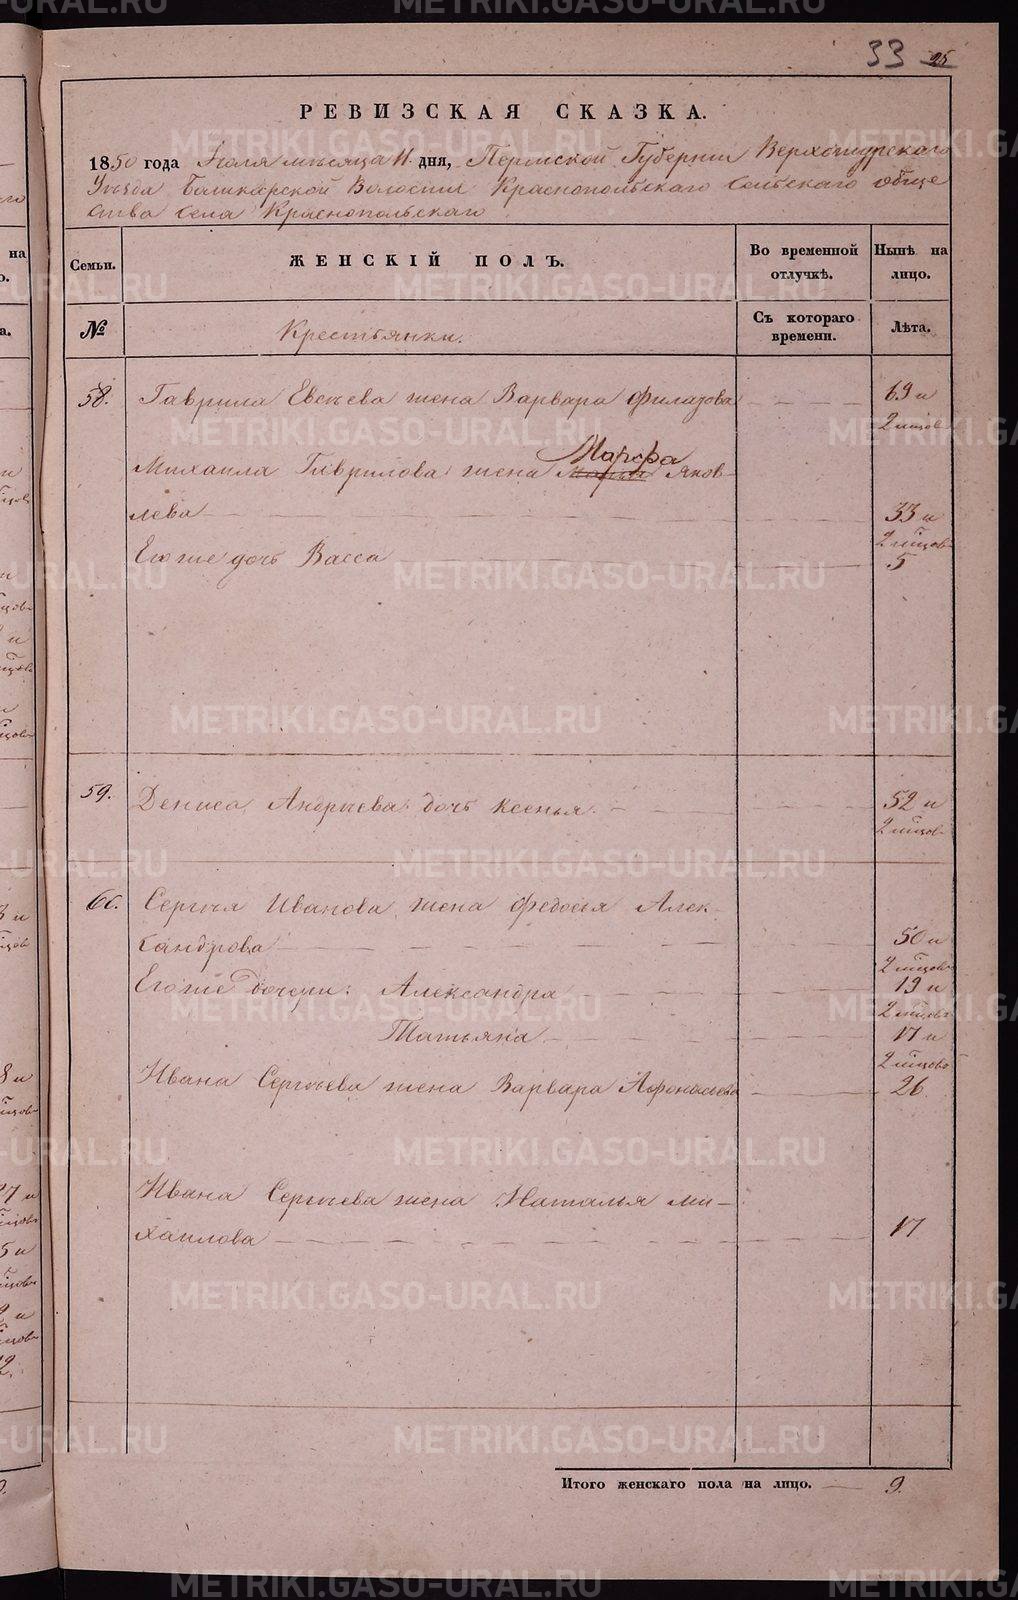 33 25
РЕВИЗСКАЯ СКАЗКА.
1850 года Июля мѣсяца 11 дня, Пермской Губернии Верхотурскаго
Уѣзда Башкарской Волости Краснопольскаго Сельскаго обще
ства села Краснопольскаго
Семьи. ЖЕНСКІЙ ПОЛЪ. Во временной отлучкѣ. Нынѣ на лицо.
№ Крестьянки. Съ котораго времени. Лѣта.
58. Гаврила Евсѣева жена Варвара 69 и
2 мѣсов
Марфа
Михаила Гаврилова жена Яков
лева 33 и
2 мѣсов
Его же дочь Васса 5
59. Дениса Андрѣева дочь Ксенья 52 и
2 мѣсов
60. Сергѣя Иванова жена Федосья Алек
сандрова 50 и
2 мѣсов
Его же дочери: Александра 19 и
2 мѣсов
Татьяна 17 и
2 мѣсов
Ивана Сергѣева жена Варвара Афонасьева 26.
Ивана Сергѣева жена Наталья Ми-
хаилова 17
Итого женскаго пола на лицо. 9.
METRIKI.GASO-URAL.RU